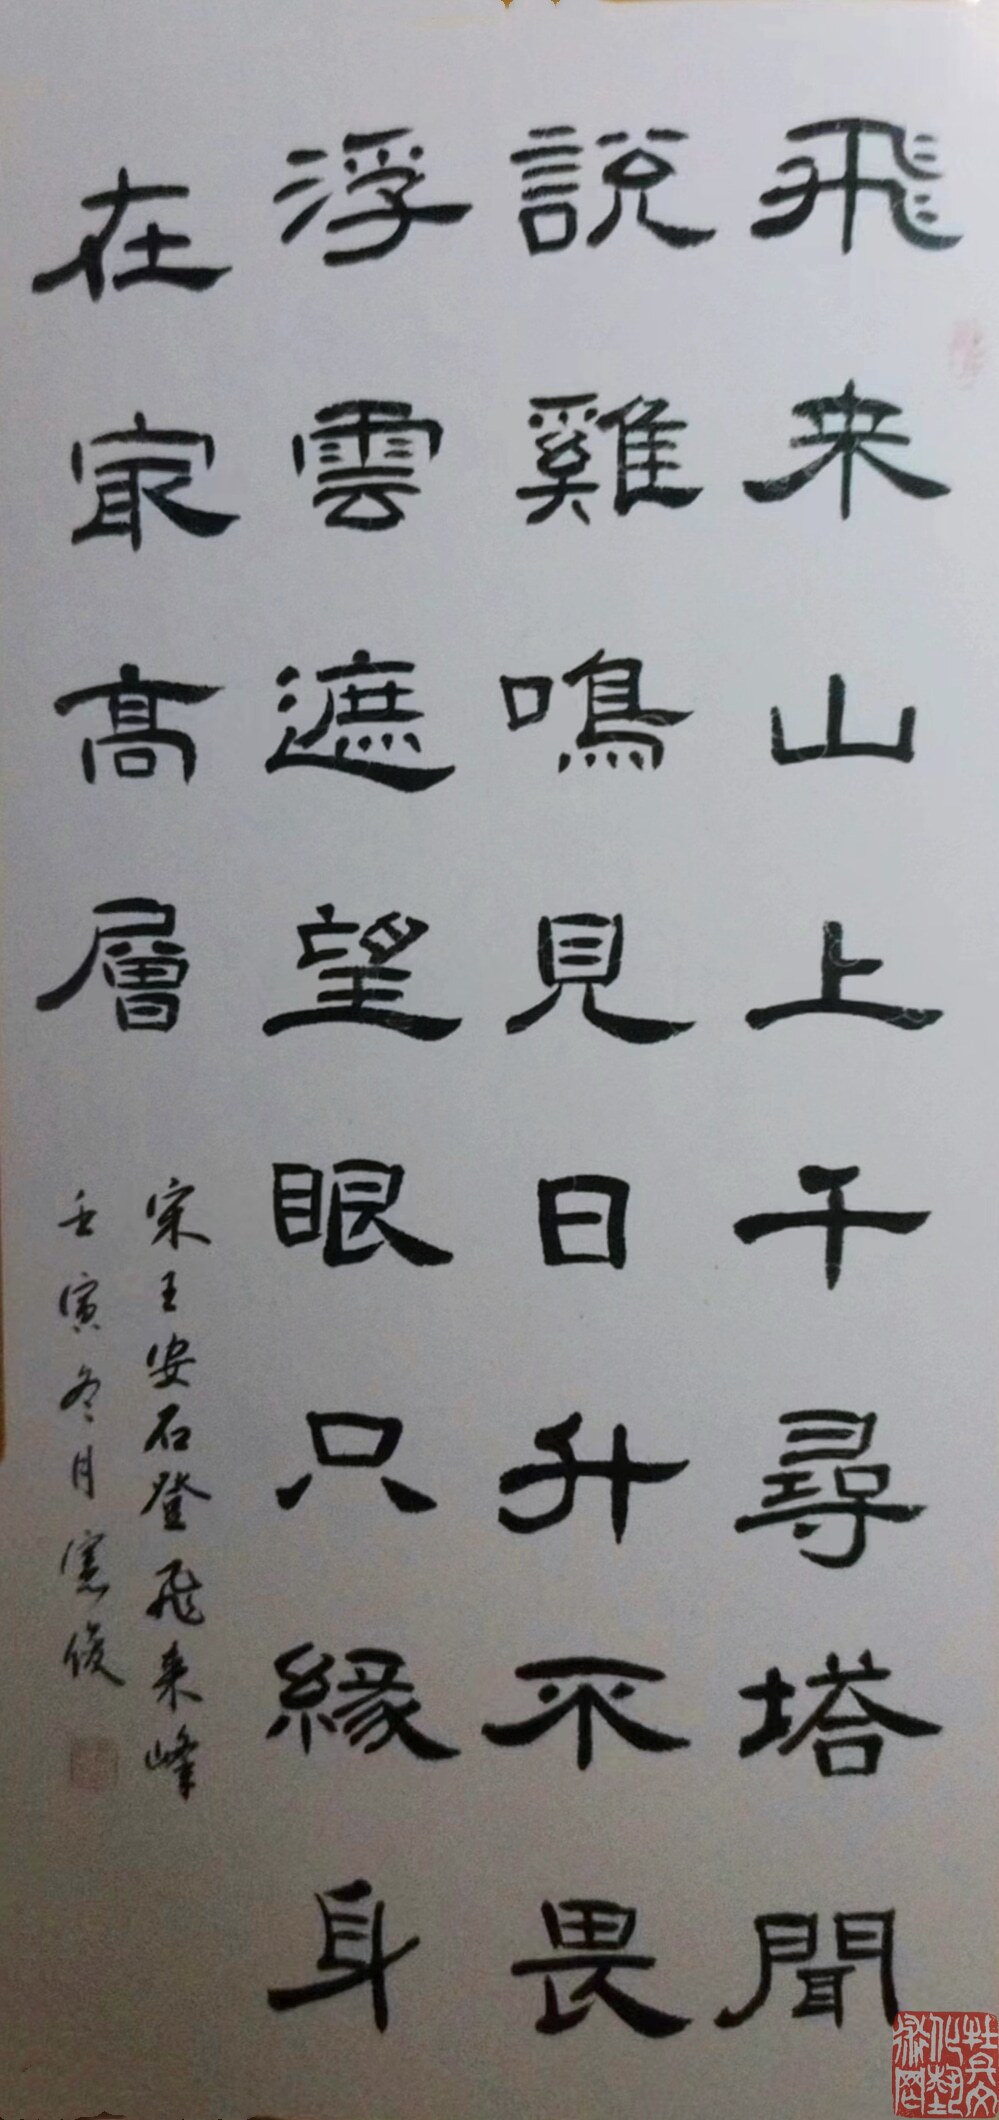 飛来山上千尋塔聞
說雞鳴見日升不畏
浮雲遮望眼只緣身
在㝡高層
宋王安石登飛来峰
壬寅冬月憲俊